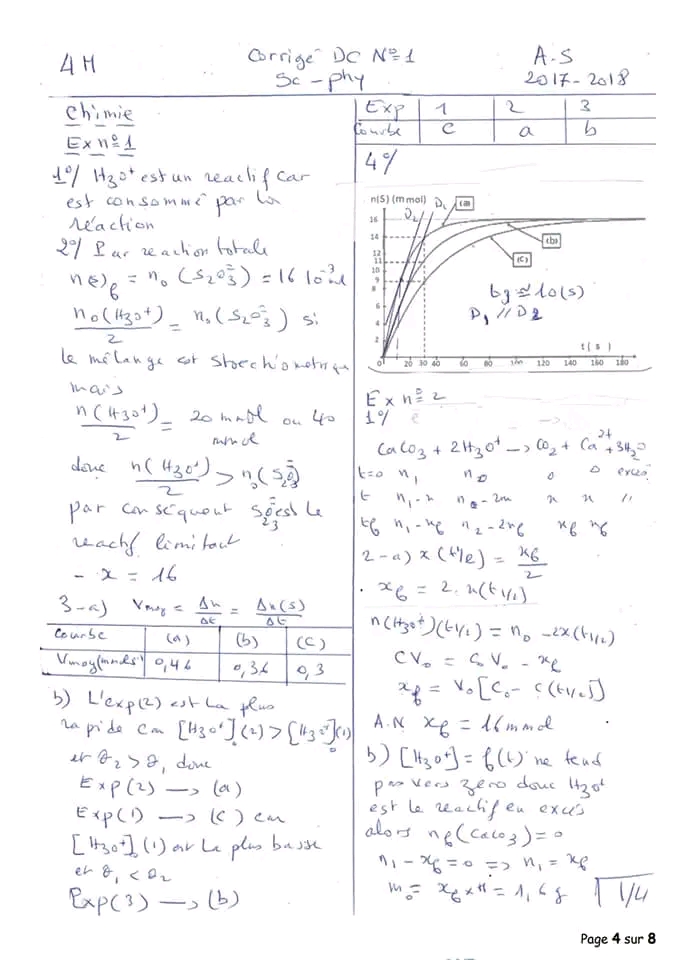 4M
Corrigé DC N°1
Sc-phy
A.S
2017-2018
Chimie
Ex n°1
1°/ H3O+ est un reactif car
est consommé par la
réaction
2°/ Par reaction totale
n(S)f = n0(S2O3²⁻) = 16 10⁻³ mol
n0(H3O+)/2 = n0(S2O3²⁻) si
le mélange est stoechiométrique
mais
n(H3O+)/2 = 20 mmol ou 40
mmol
donc n(H3O+)/2 > n0(S2O3²⁻)
par conséquent S2O3²⁻ est le
reactif limitant
- x = 16
3-a) Vmoy = Δn/Δt = Δn(S)/Δt
Courbe (a) (b) (c)
Vmoy(mmol.s⁻¹) 0,46 0,36 0,3
b) L'exp(2) est la plus
rapide car [H3O+]0(2) > [H3O+]0(1)
et θ2 > θ1 donc
Exp(2) → (a)
Exp(1) → (c) car
[H3O+]0(1) est la plus basse
et θ1 < θ2
Exp(3) → (b)
Exp 1 2 3
Courbe c a b
4°/
n(S) (mmol)
D2 D1 (a)
(b)
(c)
16
14
12
11
10
9
8
6
4
2
0
tg ≈ 10(s)
D1 // D2
t(s)
20 30 40 60 80 100 120 140 160 180
Ex n°2
1°/
CaCO3 + 2H3O+ → CO2 + Ca²⁺ + 3H2O
t=0 n1 n0 0 0 excès
t n1-x n0-2x x x //
tf n1-xf n2-2xf xf xf
2-a) x(t1/2) = xf/2
xf = 2.x(t1/2)
n(H3O+)(t1/2) = n0 - 2x(t1/2)
CV0 = C0V0 - xf
xf = V0[C0 - C(t1/2)]
A.N xf = 16 mmol
b) [H3O+] = f(t) ne tend
pas vers zéro donc H3O+
est le reactif en excès
alors nf(CaCO3) = 0
n1 - xf = 0 => n1 = xf
m0 = xf × M = 1,6 g
1/4
Page 4 sur 8